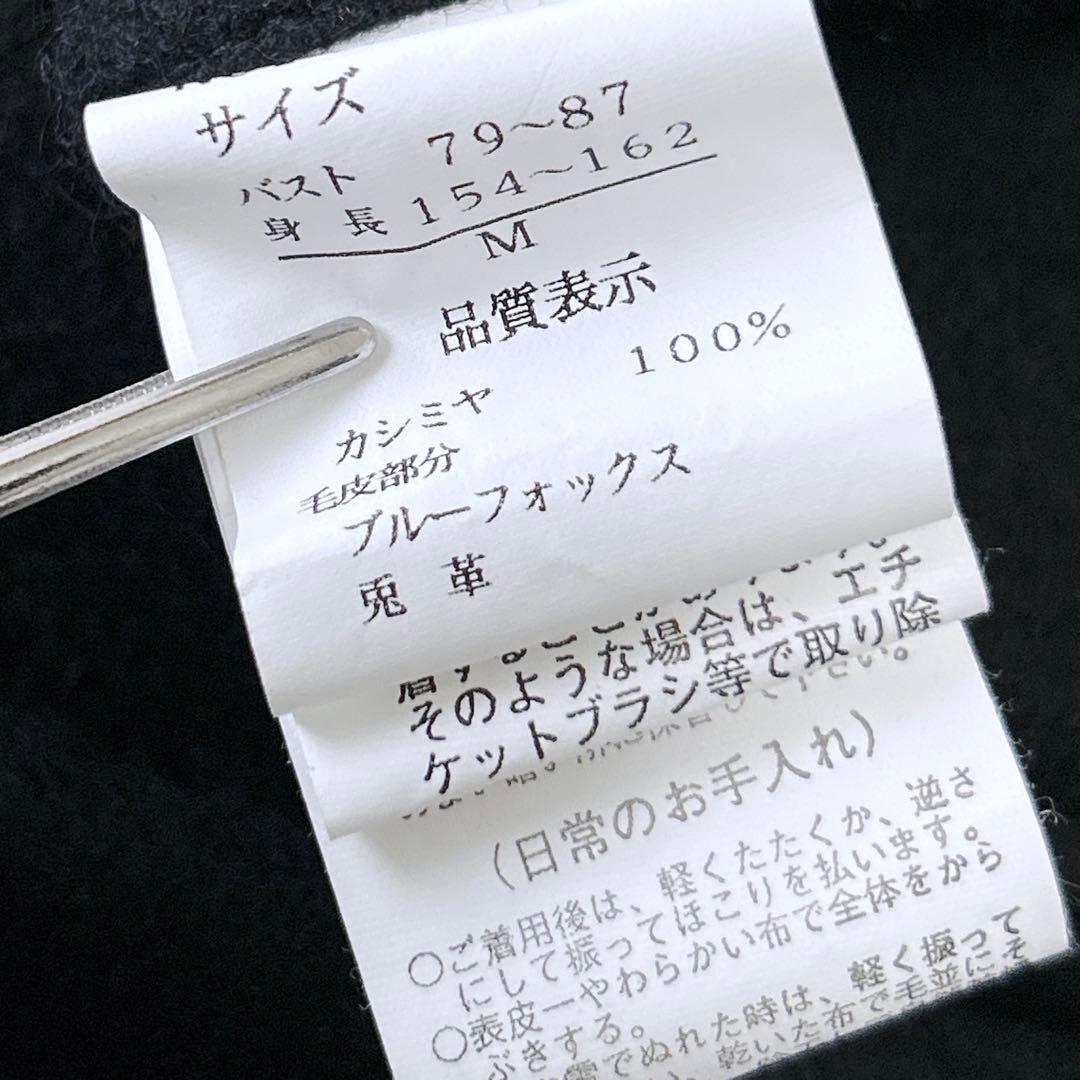 サイズ
バスト 79～87
身長 154～162
M
品質表示
カシミヤ 100%
毛皮部分
ブルーフォックス
兎革
そのような場合は、エチ
ケットブラシ等で取り除
(日常のお手入れ)
○ご着用後は、軽くたたくか、逆さ
にして振ってほこりを払います。
○表皮ーやわらかい布で全体をから
ぶきする。
でぬれた時は、軽く振って
、乾いた布で毛並にそ